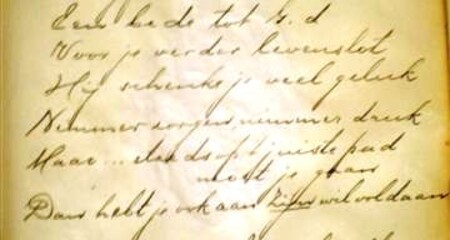 Een bede tot G.d
Voor je verder levenslot
Hij schenke je veel geluk
Nimmer zorgen, nimmer druk
Maar ... steeds op 't juiste pad
moet je gaan
Dan hebt je ook aan Zijn wil voldaan